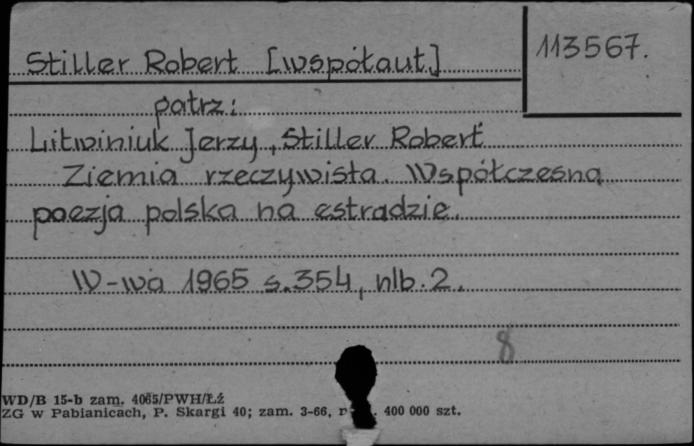 Stiller Robert [współaut.]
113567.
patrz:
Litwiniuk Jerzy, Stiller Robert
Ziemia rzeczywista. Współczesna
poezja polska na estradzie.
W-wa 1965 s. 354, nlb. 2.
8
WD/B 15-b zam. 4065/PWH/Łź
ZG w Pabianicach, P. Skargi 40; zam. 3-66, 400 000 szt.